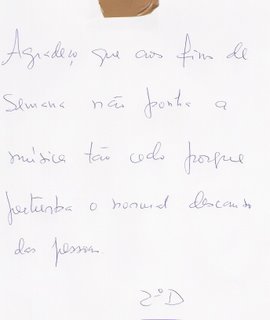 Agradeço que aos fins de
Semana não ponha a
música tão cedo porque
perturba o normal descanso
das pessoas
2º D